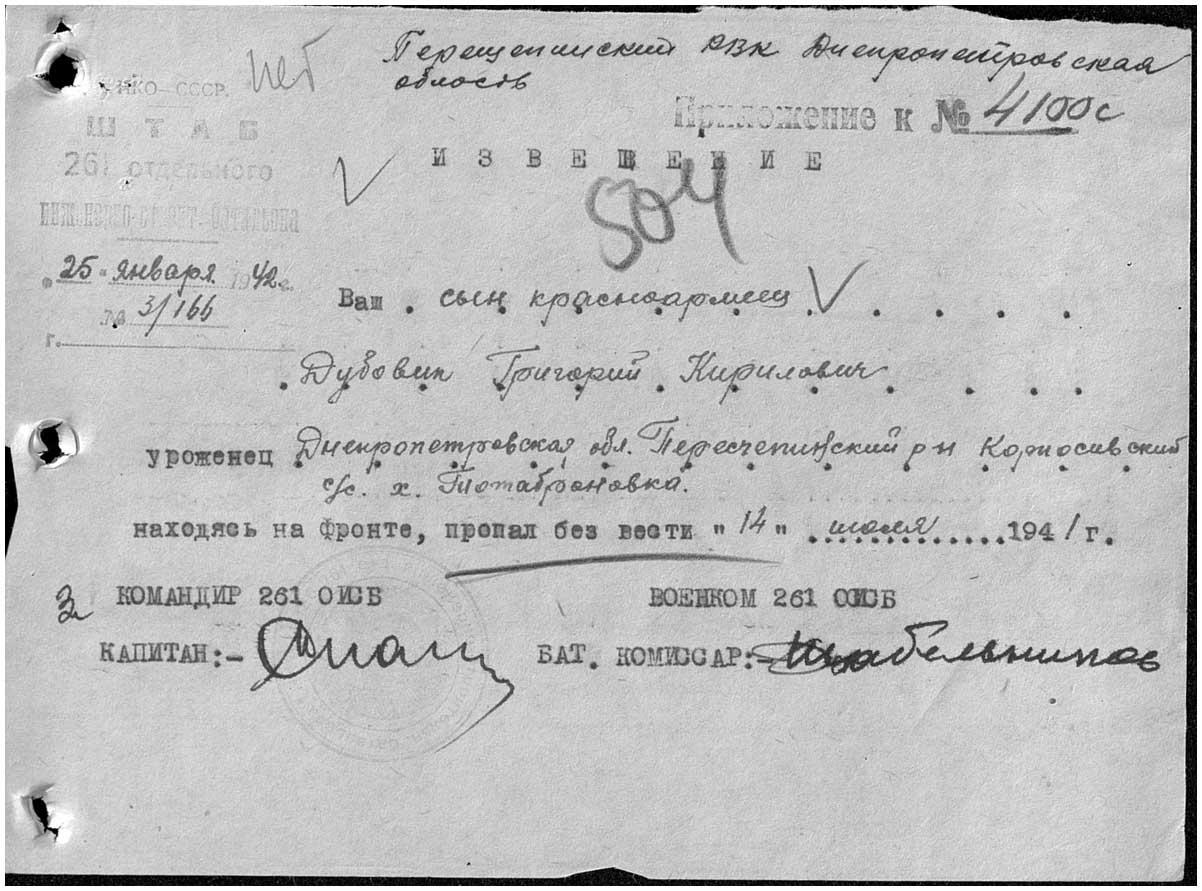 Перещепинский РВК Днепропетровская
область
нет
НКО – СССР.
ШТАБ
261 отдельного
Приложение к № 4100с
ИЗВЕЩЕНИЕ
504
"25" января 1942 г.
№ 3/166
г.
Ваш . сын красноармеец
Дубовик Григорий Кирилович
уроженец Днепропетровская обл. Пересчепинский р-н
с/с. х.
находясь на фронте, пропал без вести "14" июля 1941 г.
З
КОМАНДИР 261 ОИСБ
ВОЕНКОМ 261 ОИСБ
КАПИТАН:–
БАТ. КОМИССАР:– Шабельников